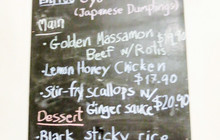 (Japanese Dumplings)
Main
- Golden Massamon
Beef w/ Rolls
- Lemon Honey Chicken
$17.90
- Stir-fry scallops w/
Ginger sauce $20.90
Dessert
- Black sticky rice